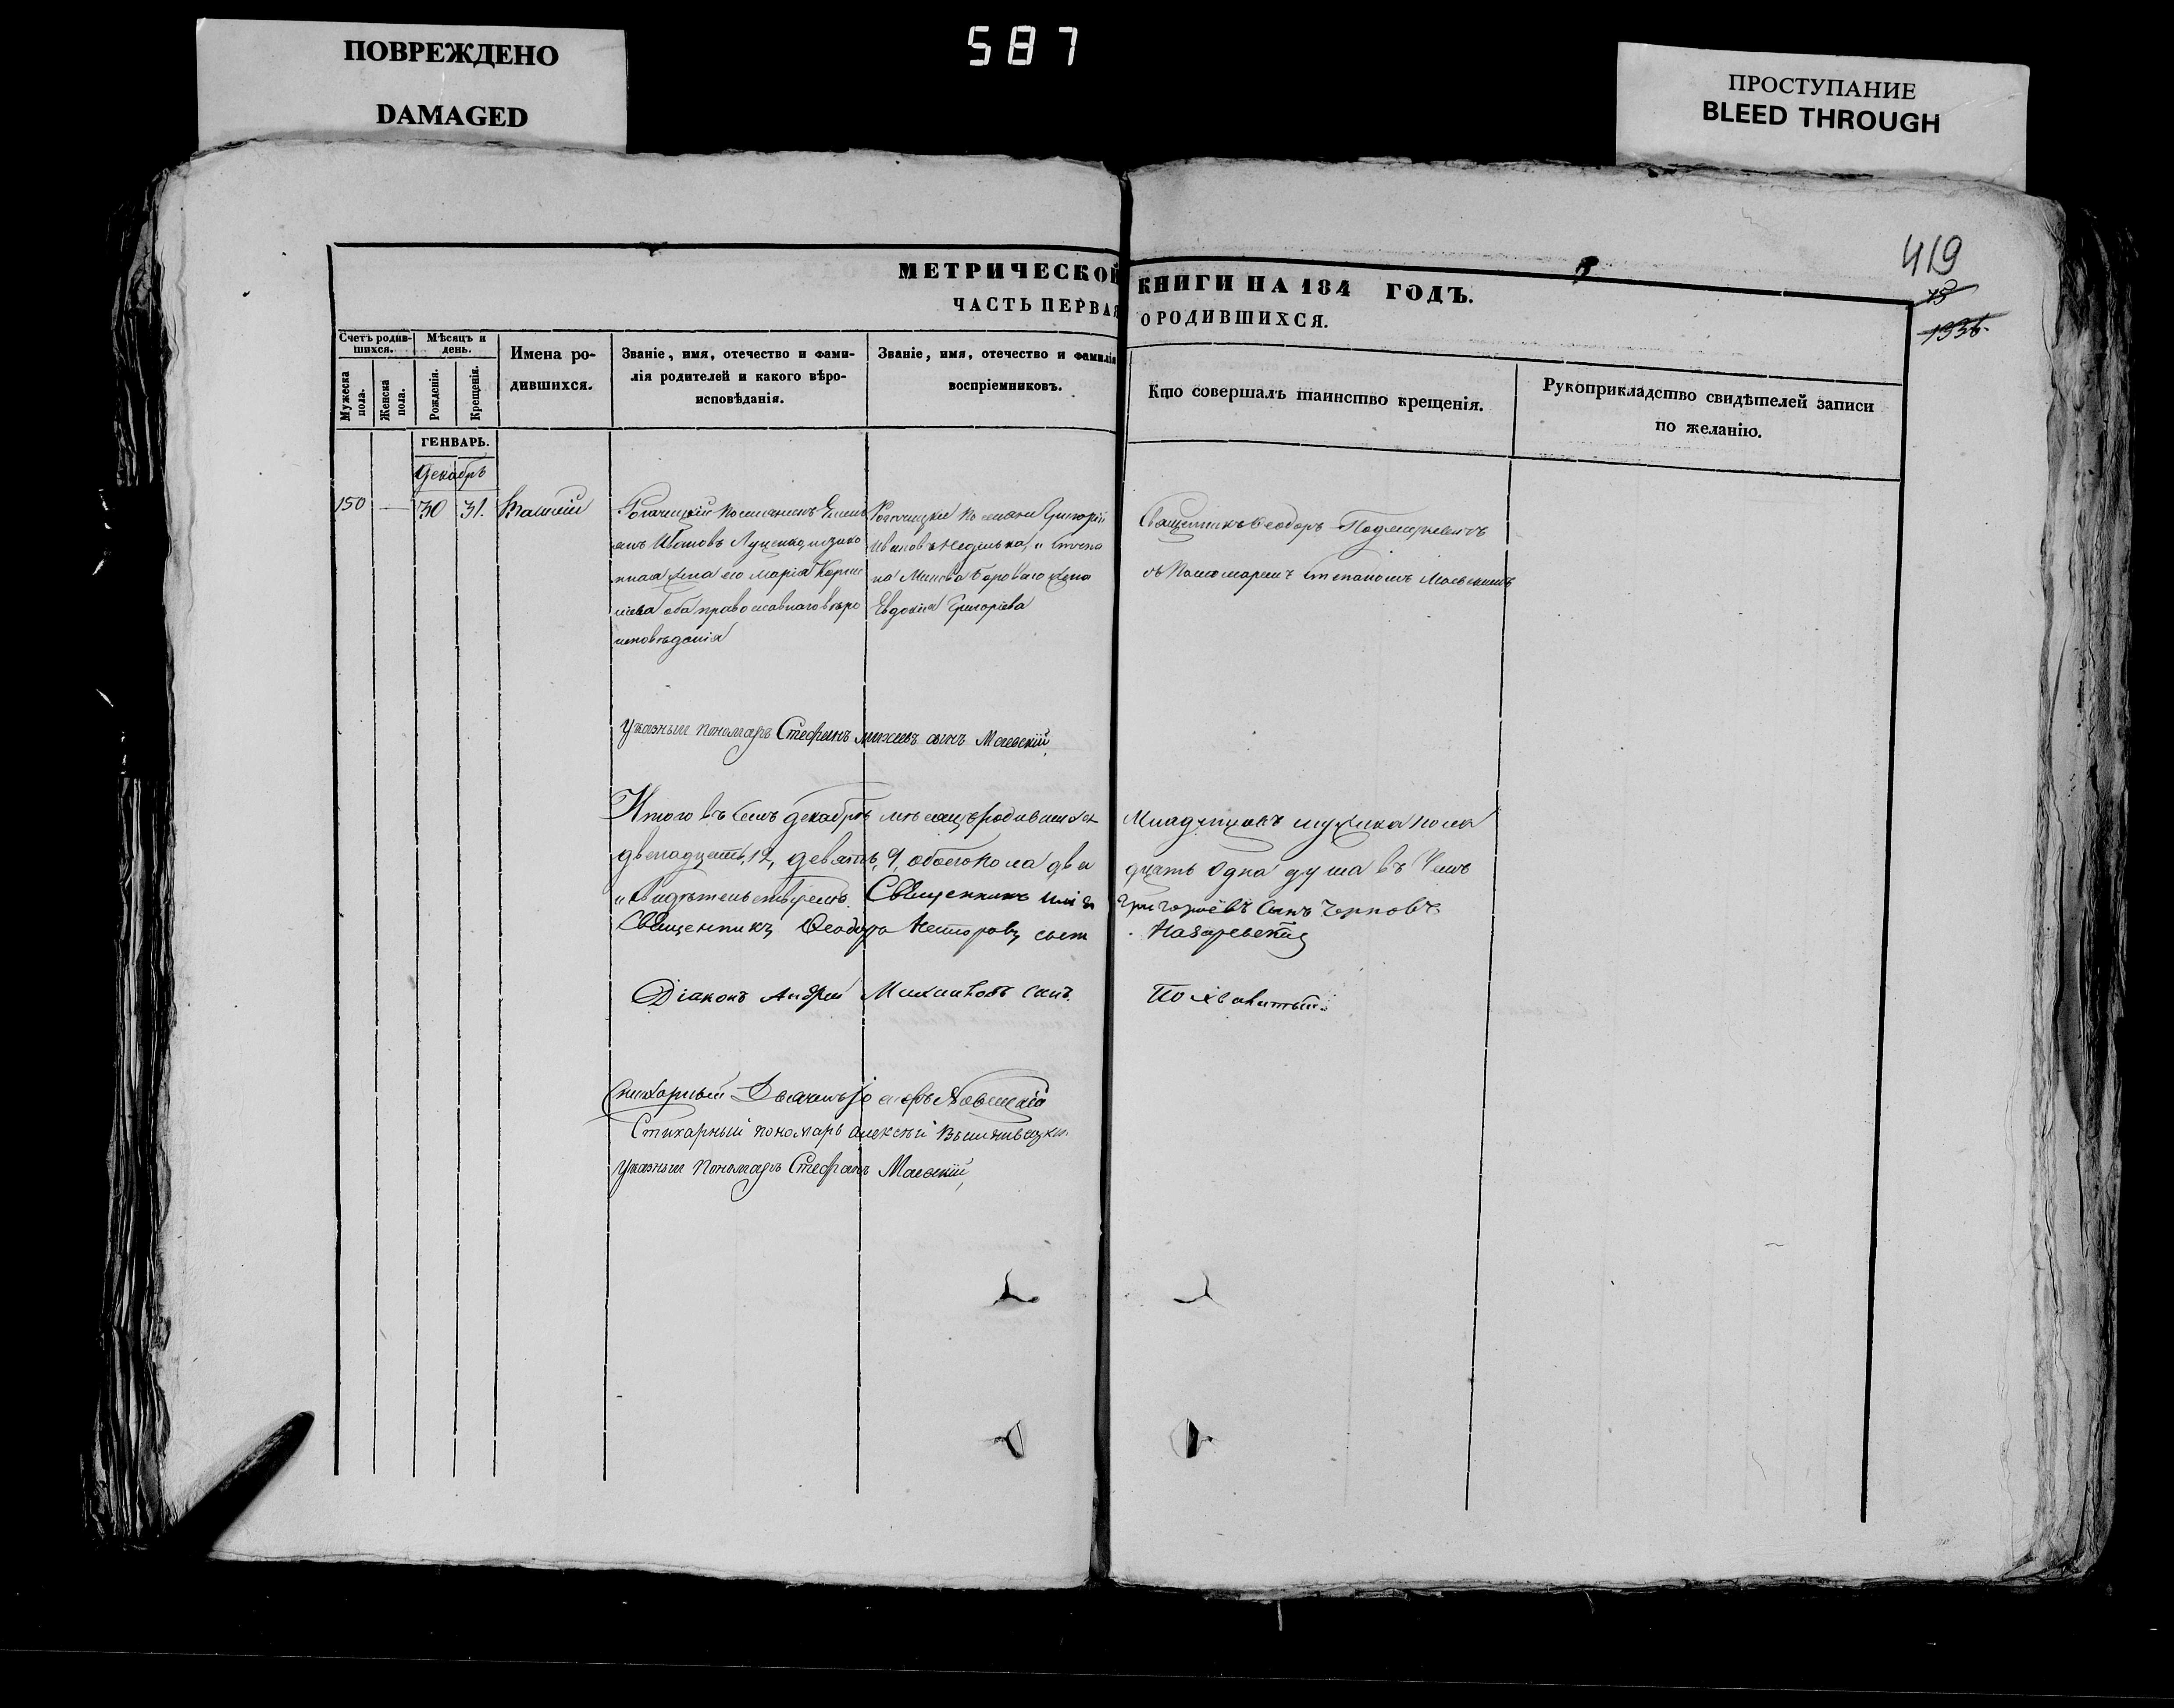 ПОВРЕЖДЕНО
DAMAGED
587
ПРОСТУПАНИЕ
BLEED THROUGH
419
МЕТРИЧЕСКОЙ КНИГИ НА 184 ГОДЪ.
ЧАСТЬ ПЕРВАЯ О РОДИВШИХСЯ.
Счетъ родив-
шихся.
Мужеска
пола.
Женска
пола.
Мѣсяцъ и
день.
Рожденія.
Крещенія.
Имена ро-
дившихся.
Званіе, имя, отечество и фами-
лія родителей и какого вѣро-
исповѣданія.
Званіе, имя, отечество и фамилія
воспріемниковъ.
Кто совершалъ таинство крещенія.
Рукоприкладство свидѣтелей записи
по желанію.
ГЕНВАРЬ.
Декабрь
150 — 30 31.
Рогачицкій поселянинъ Емель
янъ Ивановъ Луценко, и зако
нная жена его Марія Корни
лиева оба православнаго вѣро
исповѣданія
Рогачицкіе поселяне Григорій
Ивановъ Неделько, и Степа
на Борового жена
Евдокія Григоріева
Священникъ Феодоръ
съ Пономаремъ Степаномъ Маевскимъ
Указный пономарь Стефанъ сынъ Маевскій,
Итого въ семъ декабрѣ мѣсяцѣ родившихся Младенцовъ мужеска пола
двенадцать, 12, девять, 9, обоего пола два дцать одна душа въ чемъ
и свидѣтельствуемъ. Священникъ Григорьевъ сынъ Черповъ
Священникъ Феодоръ Несторовъ сынъ Назаревскій
Діаконъ Андрей Михаиловъ сынъ Похвалитый.
Стихарный
Стихарный пономарь Алексѣй
Указный Пономарь Стефанъ Маевскій,